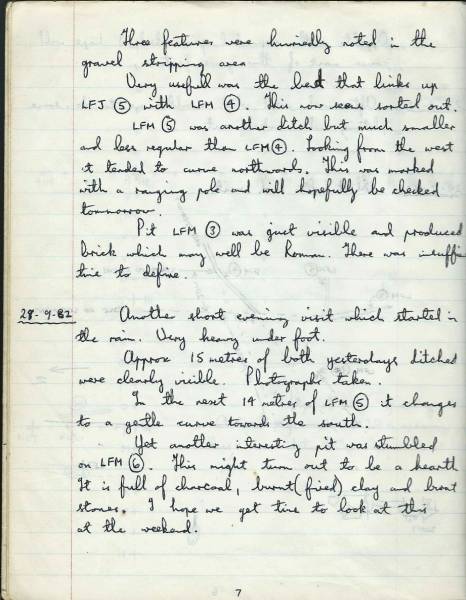 Three features were hurriedly noted in the
gravel stripping area
Very usefull was the bend that links up
LFJ ⑤ with LFM ④. This now seems sorted out.
LFM ⑤ was another ditch but much smaller
and less regular than LFM ④. Looking from the west
it tended to curve northwards. This was marked
with a ranging pole and will hopefully be checked
tommorrow.
Pit LFM ③ was just visible and produced
brick which may well be Roman. There was insuffie
time to define.
28-9-82 Another short evening visit which started in
the rain. Very heavy under foot.
Approx 15 metres of both yesterdays ditched
were clearly visible. Photographs taken.
In the next 14 metres of LFM ⑤ it changes
to a gentle curve towards the south.
Yet another interesting pit was stumbled
on LFM ⑥. This might turn out to be a hearth
It is full of charcoal, burnt (fired) clay and brent
stones. I hope we get time to look at this
at the weekend.
7